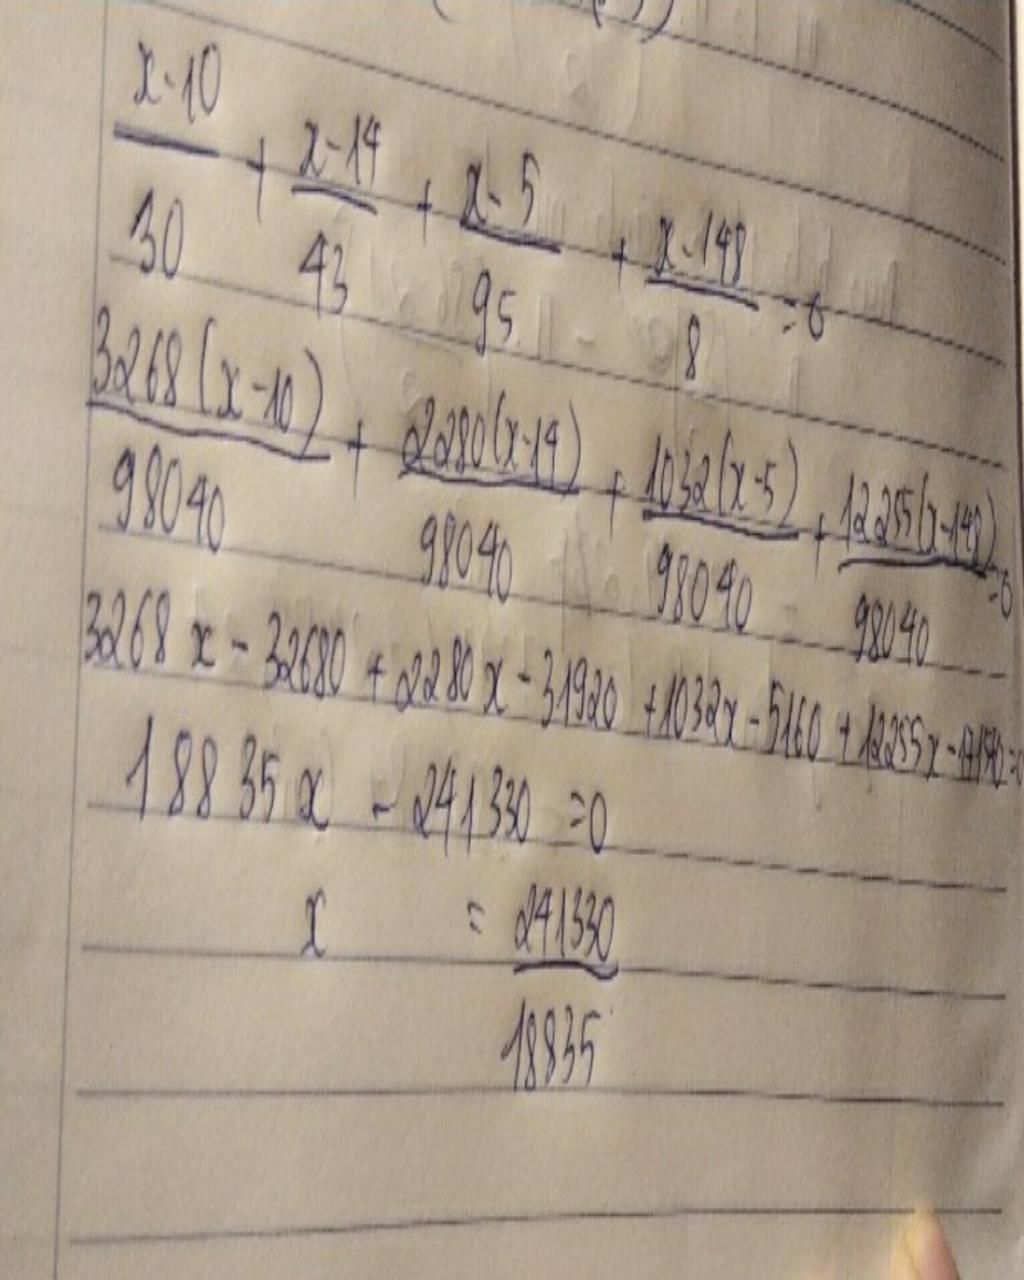 x-10/30 + x-14/43 + x-5/95 + x-148/8 = 0
3268(x-10)/98040 + 2280(x-14)/98040 + 1032(x-5)/98040 + 12255(x-148)/98040 = 0
3268x - 32680 + 2280x - 31920 + 1032x - 5160 + 12255x - =0
18835x - 241330 =0
x = 241330/18835